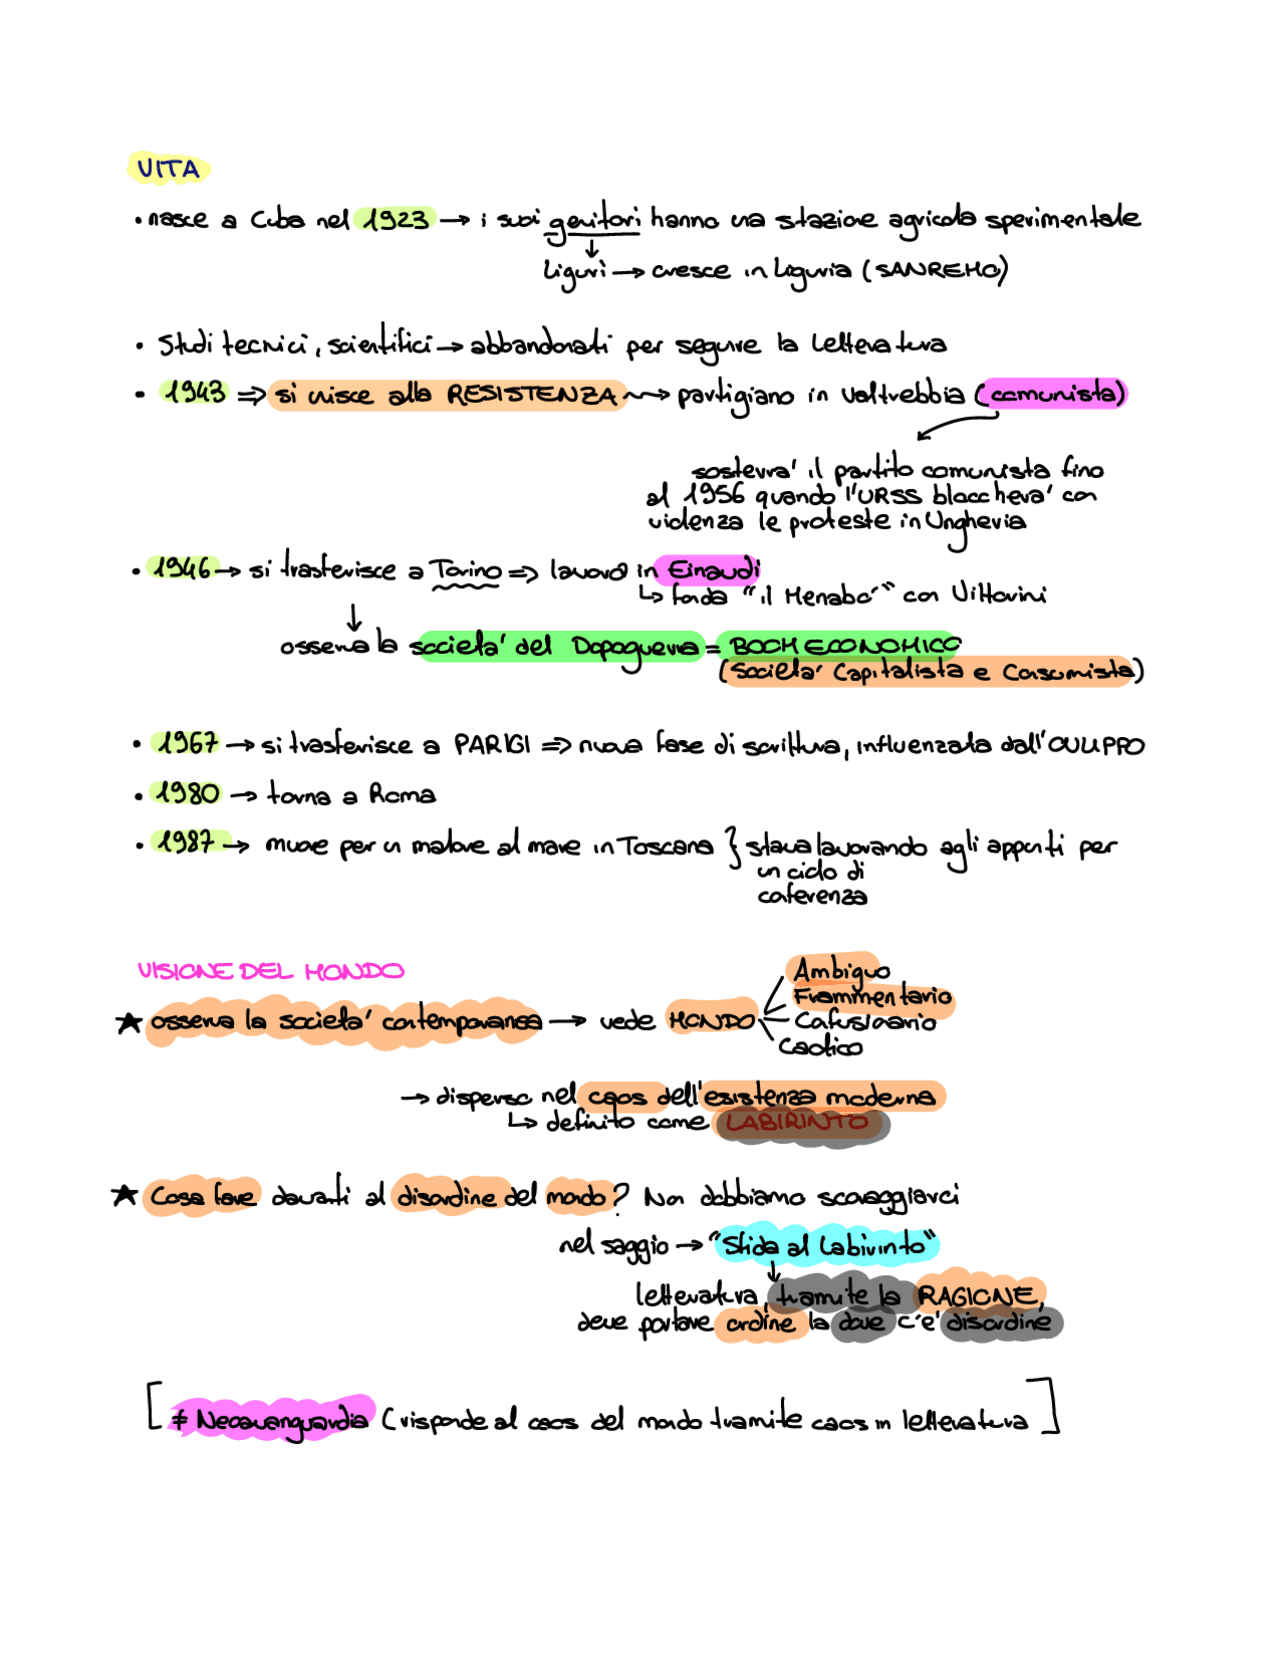 VITA
• nasce a Cuba nel 1923 → i suoi genitori hanno una stazione agricola sperimentale
↓
liguri → cresce in Liguria (SANREMO)
• Studi tecnici, scientifici → abbandonati per seguire la letteratura
• 1943 ⇒ si unisce alla RESISTENZA ⇝ partigiano in Valtrebbia (comunista)
sosterra' il partito comunista fino
al 1956 quando l'URSS blocchera' con
violenza le proteste in Ungheria
• 1946 → si trasferisce a Torino ⇒ lavora in Einaudi
↳ fonda "il Menabo'" con Vittorini
↓
osserva la societa' del Dopoguerra = BOOM ECONOMICO
(Societa' Capitalista e Consumista)
• 1967 → si trasferisce a PARIGI ⇒ nuova fase di scrittura, influenzata dall'OULIPPO
• 1980 → torna a Roma
• 1987 → muore per un malore al mare in Toscana } stava lavorando agli appunti per
un ciclo di
conferenza
VISIONE DEL MONDO
Ambiguo
Frammentario
★ osserva la societa' contemporanea → vede MONDO Confusionario
Caotico
→ disperso nel caos dell'esistenza moderna
↳ definito come LABIRINTO
★ Cosa fare davanti al disordine del mondo? Non dobbiamo scoraggiarci
nel saggio → "Sfida al Labirinto"
↓
letteratura, tramite la RAGIONE,
deve portare ordine la dove c'e' disordine
[ ≠ Neoavanguardia (risponde al caos del mondo tramite caos in letteratura ]